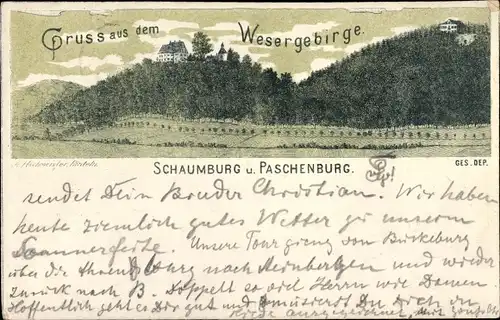 Gruss aus dem Wesergebirge.
SCHAUMBURG u. PASCHENBURG.
GES. DEP.
sendet Dein Bruder Christian. Wir haben
heute ziemlich gutes Wetter zu unserm
Sommerfeste. Unsere Tour ging von Bückeburg
über die Ahrensburg nach Steinbergen und wieder
zurück nach B. Doppelt so viel Herrn wie Damen.
Hoffentlich geht es Dir gut und amüsierst Du Dich
ausgezeichnet, mit